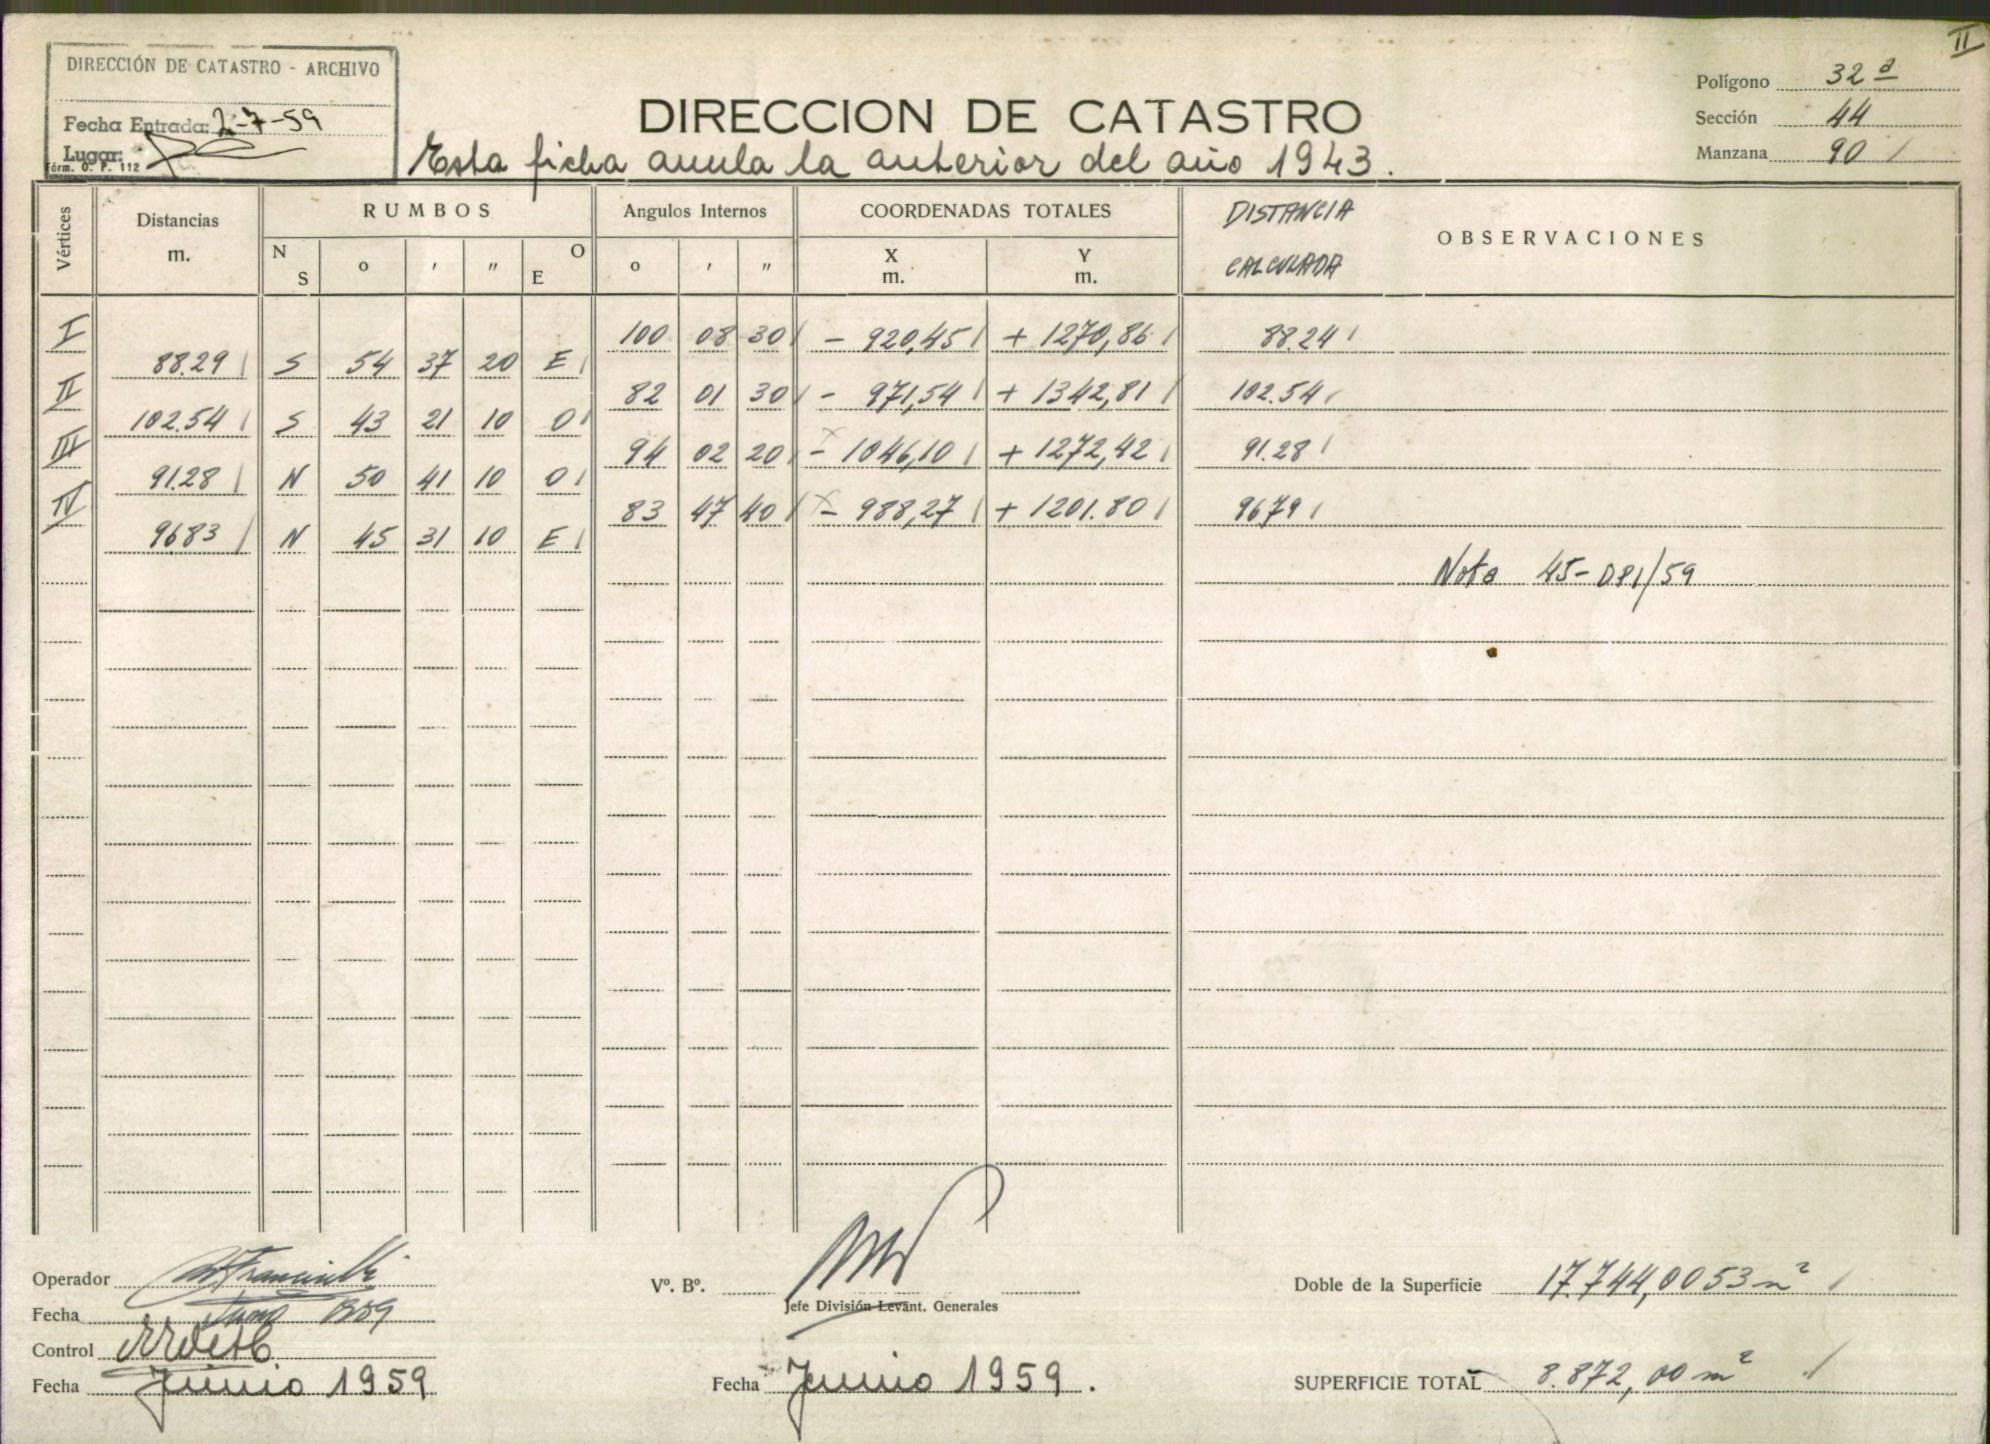 II
DIRECCIÓN DE CATASTRO - ARCHIVO
Fecha Entrada: 2-7-59
Lugar:
Fórm. O. P. 112
DIRECCION DE CATASTRO
Esta ficha anula la anterior del año 1943.
Polígono 32ª
Sección 44
Manzana 90
Vértices Distancias m. RUMBOS Angulos Internos COORDENADAS TOTALES DISTANCIA CALCULADA OBSERVACIONES
N S o ' " O E o ' " X m. Y m.
I 100 08 30 - 920,45 + 1270,86 88.24
88.29 S 54 37 20 E
II 82 01 30 - 971,54 + 1342,81 102.54
102.54 S 43 21 10 O
III 94 02 20 - 1046,10 + 1272,42 91.28
91.28 N 50 41 10 O
IV 83 47 40 - 988,27 + 1201.80 96.79
96.83 N 45 31 10 E
Nota 45-DPI/59
Operador
Fecha Junio 1959
Control
Fecha Junio 1959
Vº. Bº.
Jefe División Levant. Generales
Fecha Junio 1959.
Doble de la Superficie 17.744,0053 m²
SUPERFICIE TOTAL 8.872,00 m²